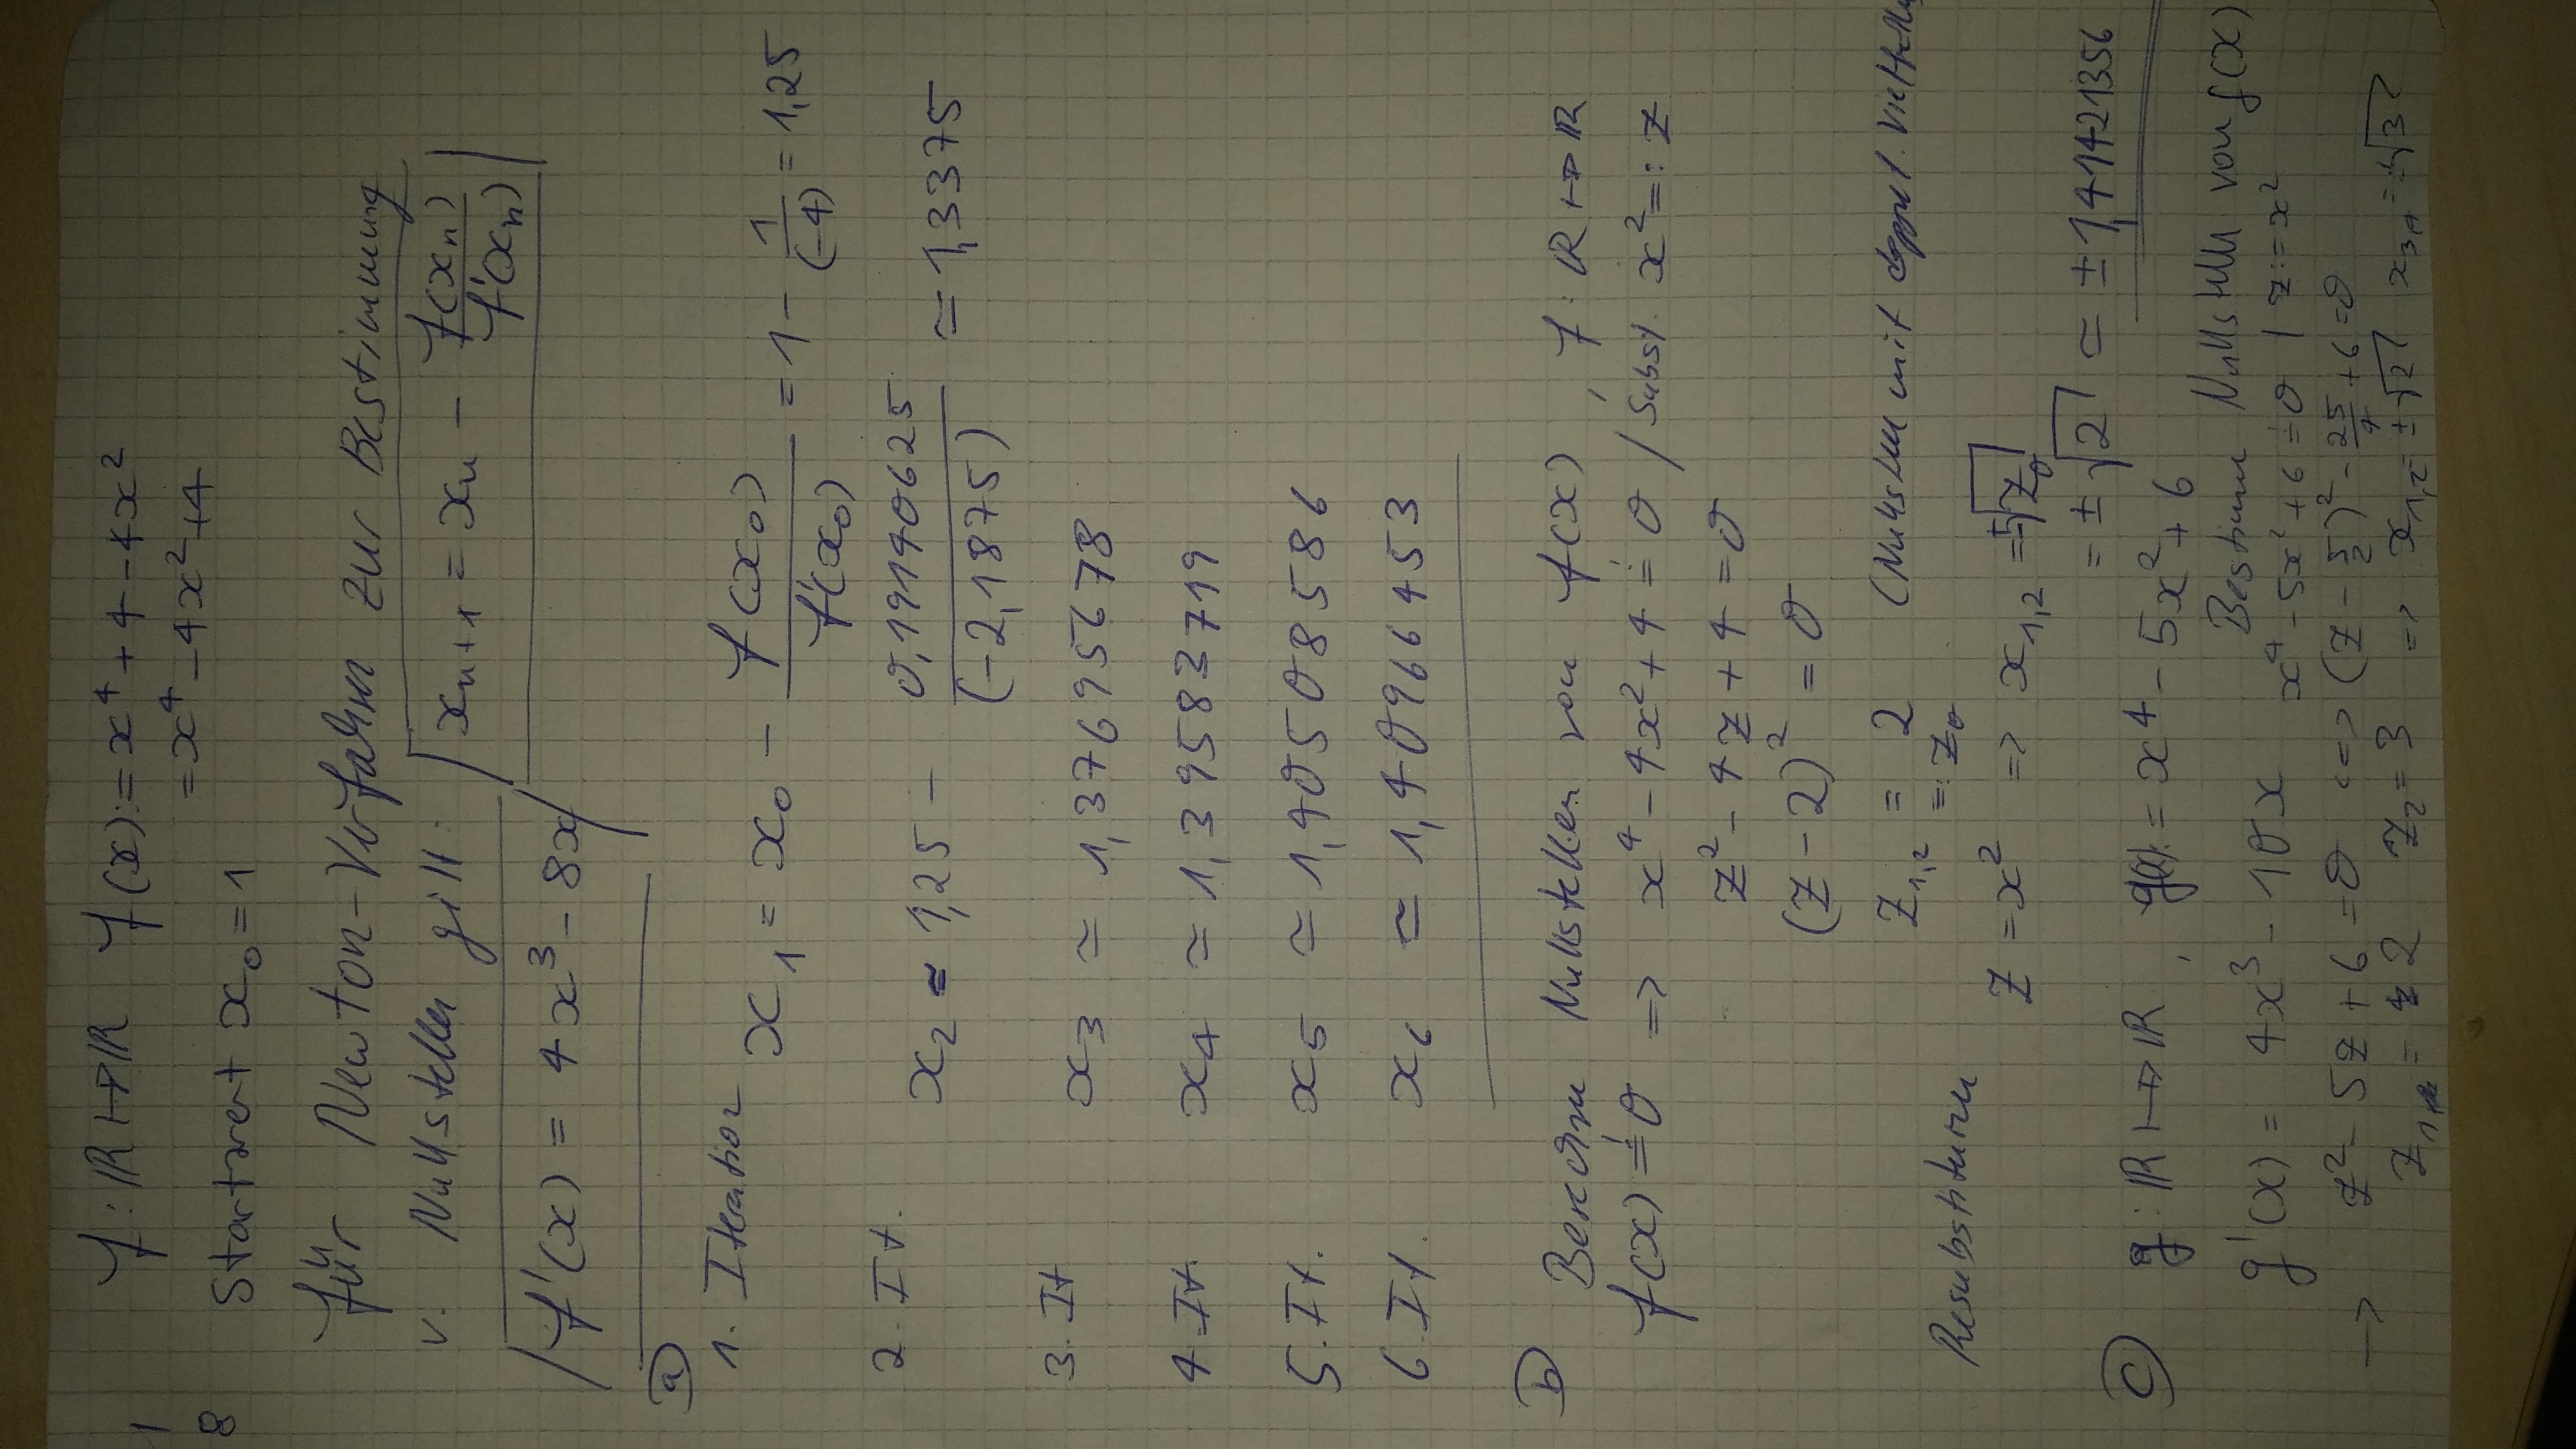 f : ℝ ↦ ℝ f(x) := x⁴ + 4 - 4x²
1
= x⁴ - 4x² + 4
8
Startwert x₀ = 1
für Newton-Verfahren zur Bestimmung
v. Nullstellen gilt: xₙ₊₁ = xₙ - f(xₙ)/f'(xₙ)
f'(x) = 4x³ - 8x
a)
1. Iteration x₁ = x₀ - f(x₀)/f'(x₀) = 1 - 1/(-4) = 1,25
2. It. x₂ ≃ 1,25 - 0,19140625/(-2,1875) ≃ 1,3375
3. It x₃ ≃ 1,37695678
4. It. x₄ ≃ 1,39583719
5. It. x₅ ≃ 1,40508586
6. It. x₆ ≃ 1,40966453
b) Berechne Nullstellen von f(x), f : ℝ ↦ ℝ
f(x) =! 0 => x⁴ - 4x² + 4 =! 0 / Subst. x² =: z
z² - 4z + 4 = 0
(z - 2)² = 0
z₁,₂ = 2 (Nullstelle mit doppelt.
=: z₀
Resubstitution
z = x² => x₁,₂ = ±√z₀
= ±√2 ≃ ±1,41421356
c) g : ℝ ↦ ℝ, g(x) := x⁴ - 5x² + 6
Bestimme Nullstellen von g(x)
g'(x) = 4x³ - 10x x⁴ - 5x² + 6 =! 0 | z := x²
→ z² - 5z + 6 = 0 <=> (z - 5/2)² - 25/4 + 6 = 0
z₁ = 2 z₂ = 3 => x₁,₂ = ±√2 x₃,₄ = ±√3